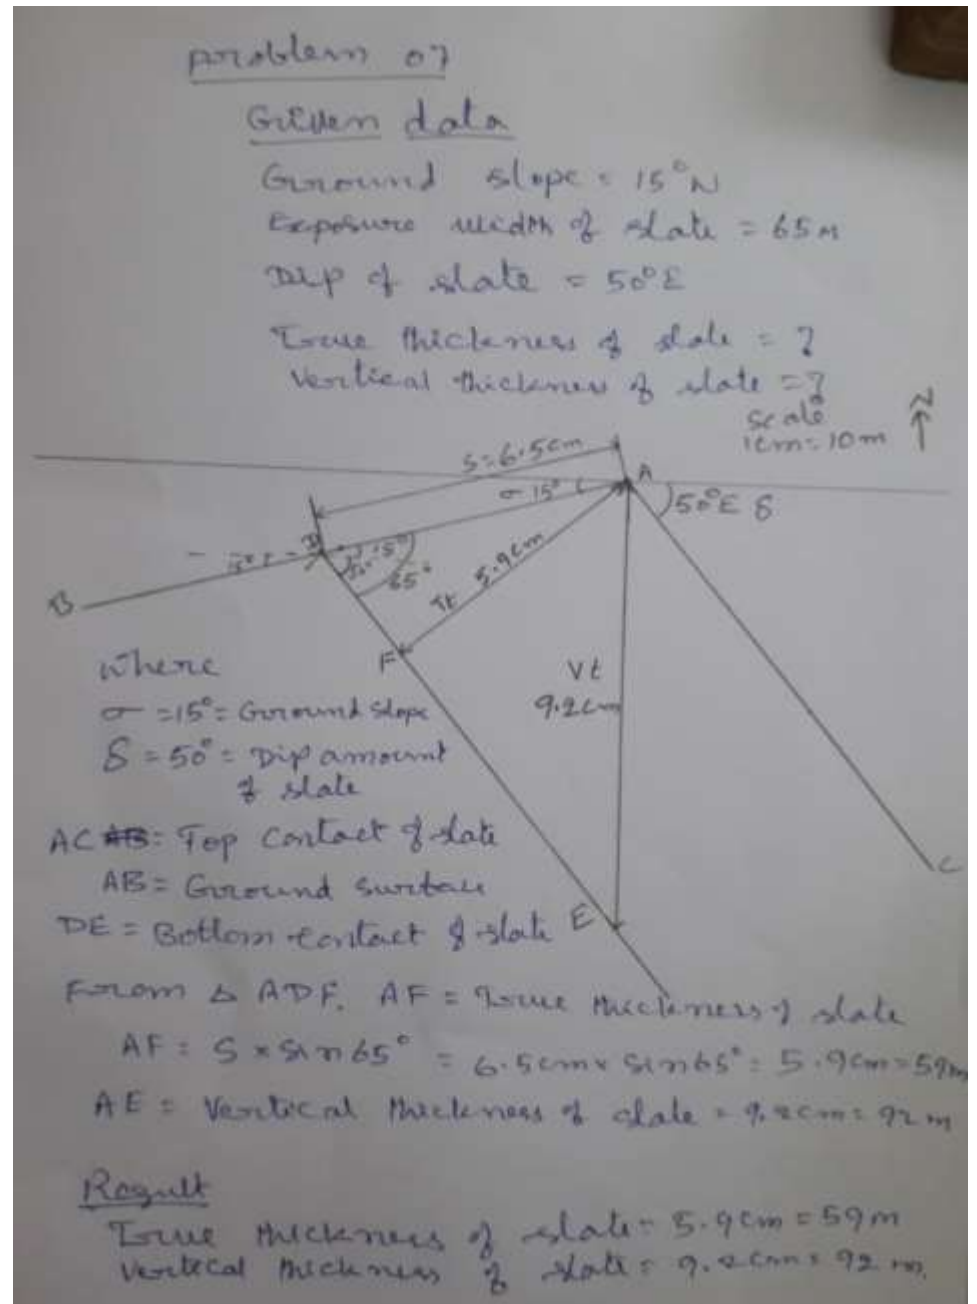 problem 07
Given data
Ground slope = 15° N
Exposure width of slate = 65m
Dip of slate = 50° E
True thickness of slate = ?
Vertical thickness of slate = ?
scale
1cm = 10m
N
S = 6.5cm
A
σ 15°
50° E δ
D
65°
B
Tt 5.9cm
F
Vt
9.2cm
where
σ = 15° = Ground slope
δ = 50° = Dip amount
of slate
AC = Top contact of slate
C
AB = Ground surface
DE = Bottom contact of slate
E
From Δ ADF, AF = True thickness of slate
AF = S × sin65° = 6.5cm × sin65° = 5.9cm = 59m
AE = Vertical thickness of slate = 9.2cm = 92m
Result
True thickness of slate = 5.9cm = 59m
Vertical thickness of slate = 9.2cm = 92m.